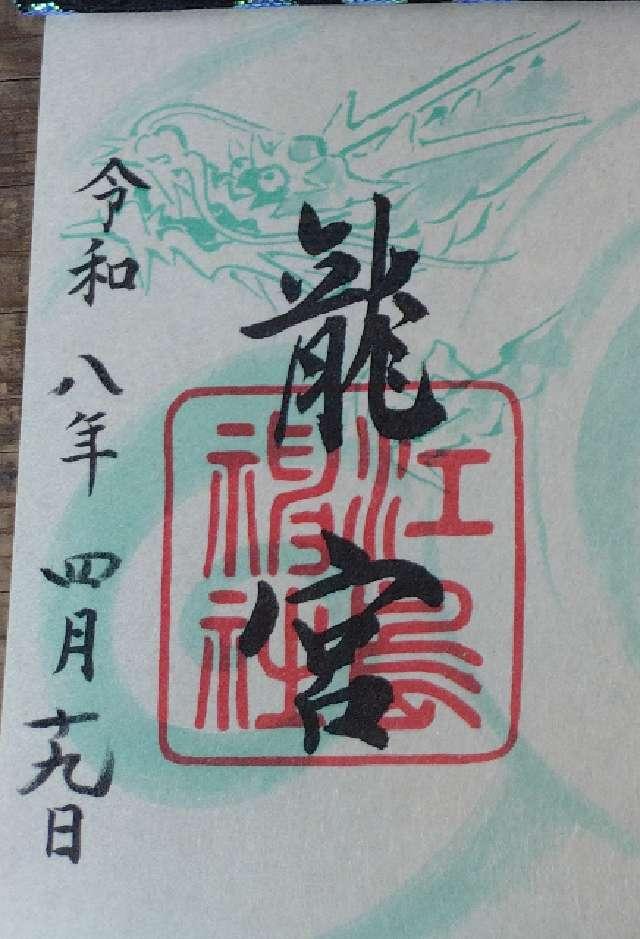 龍宮
江島神社
令和八年四月十九日